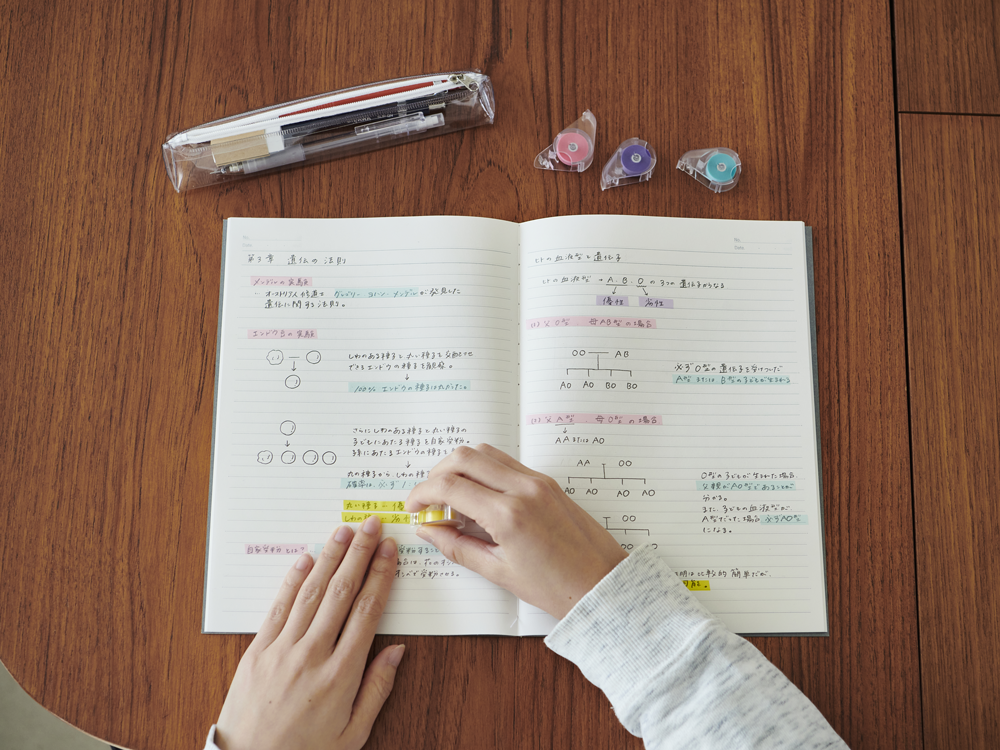 第3章 遺伝の法則
メンデルの実験
・オーストリア人修道士 グレゴリー・ヨハン・メンデルが発見した
遺伝に関する法則。
エンドウ豆の実験
しわのある種子と丸い種子を交配させ
できるエンドウの種子を観察。
100% エンドウの種子は丸だった。
さらにしわのある種子と丸い種子の
子どもにあたる種子を自家受粉。
孫にあたるエンドウの種子を
丸の種子から、しわの種
確率は、必ず
丸い種子 = 優
しわの
自家受粉とは?
ヒトの血液型と遺伝子
ヒトの血液型 → A、B、Oの3つの遺伝子からなる
優性 劣性
(1) 父 O型 母 AB型 の場合
OO AB
AO AO BO BO
必ずOの遺伝子を受けつぐため
A型またはB型の子どもが生まれる
(2) 父 A型 母 O型 の場合
AA または AO
AA OO
AO AO AO AO
OO
O型の子どもが生まれた場合、
父親がAO型であることが
分かる。
また、子どもの血液型が
A型だった場合 必ずAO型
になる。
は比較的簡単だが、